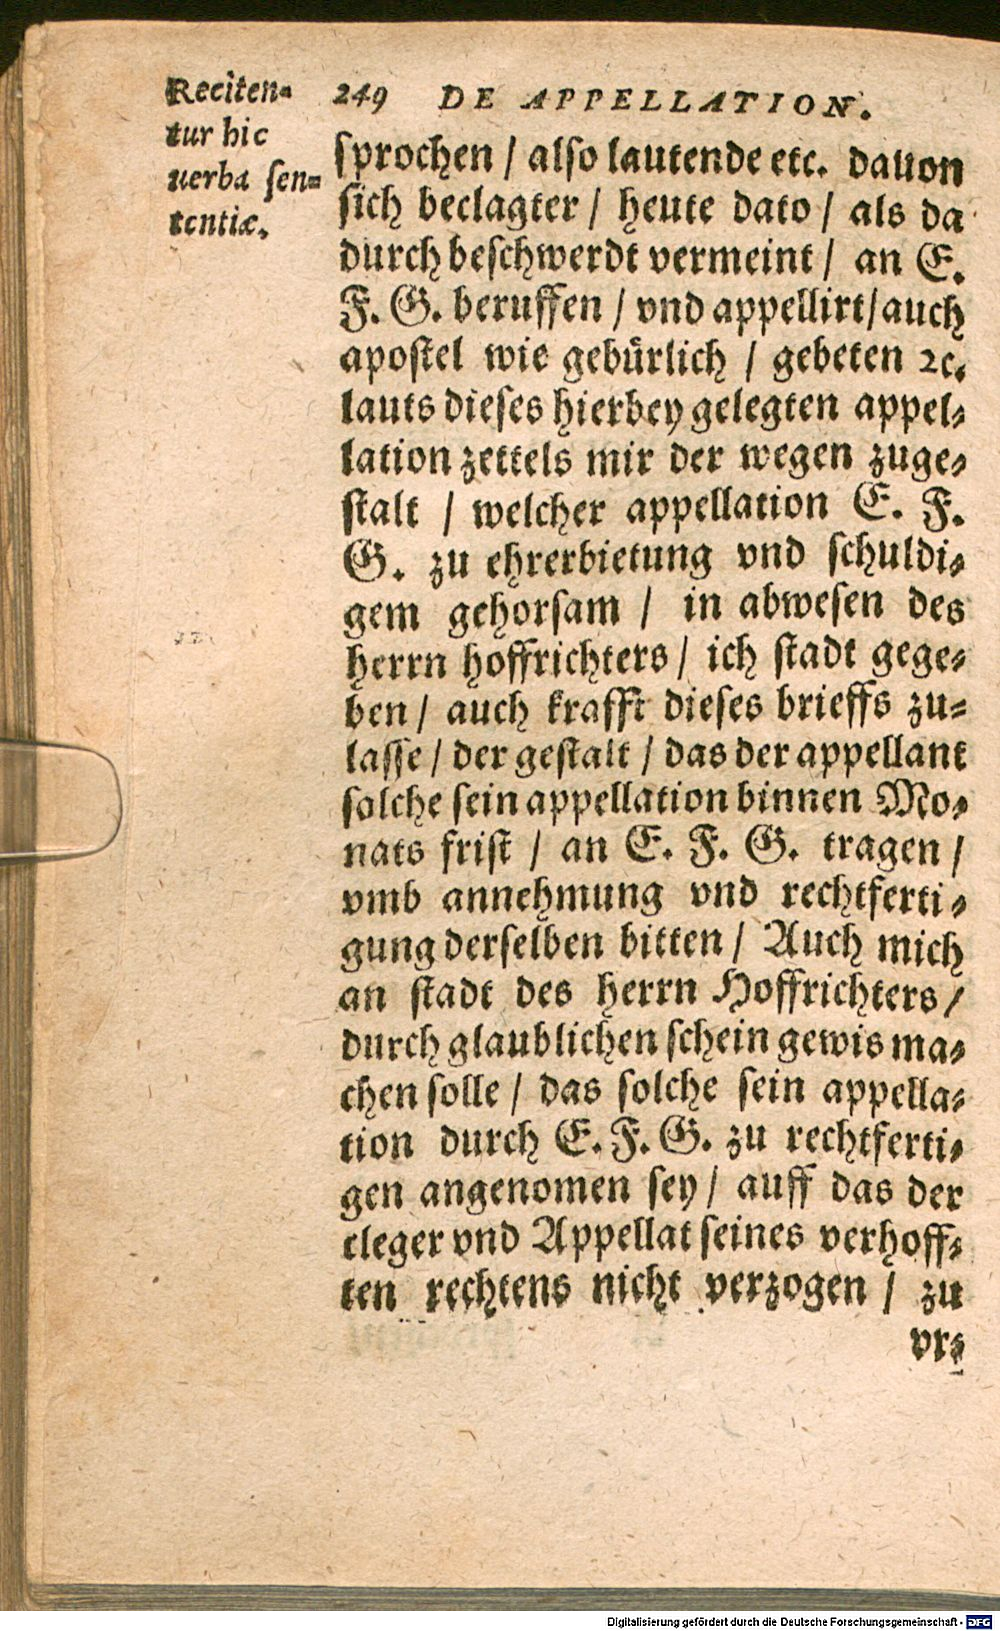 Reciten-
tur hic
uerba sen-
tentiæ.
249 DE APPELLATION.
sprochen / also lautende etc. dauon
sich beclagter / heute dato / als da
durch beschwerdt vermeint / an E.
F. G. beruffen / vnd appellirt / auch
apostel wie gebürlich / gebeten ꝛc.
lauts dieses hierbey gelegten appel-
lation zettels mir der wegen zuge-
stalt / welcher appellation E. F.
G. zu ehrerbietung vnd schuldi-
gem gehorsam / in abwesen des
herrn hoffrichters / ich stadt gege-
ben / auch krafft dieses brieffs zu-
lasse / der gestalt / das der appellant
solche sein appellation binnen Mo-
nats frist / an E. F. G. tragen /
vmb annehmung vnd rechtferti-
gung derselben bitten / Auch mich
an stadt des herrn Hoffrichters /
durch glaublichen schein gewis ma-
chen solle / das solche sein appella-
tion durch E. F. G. zu rechtferti-
gen angenomen sey / auff das der
cleger vnd Appellat seines verhoff-
ten rechtens nicht verzogen / zu
vr-
Digitalisierung gefördert durch die Deutsche Forschungsgemeinschaft - DFG